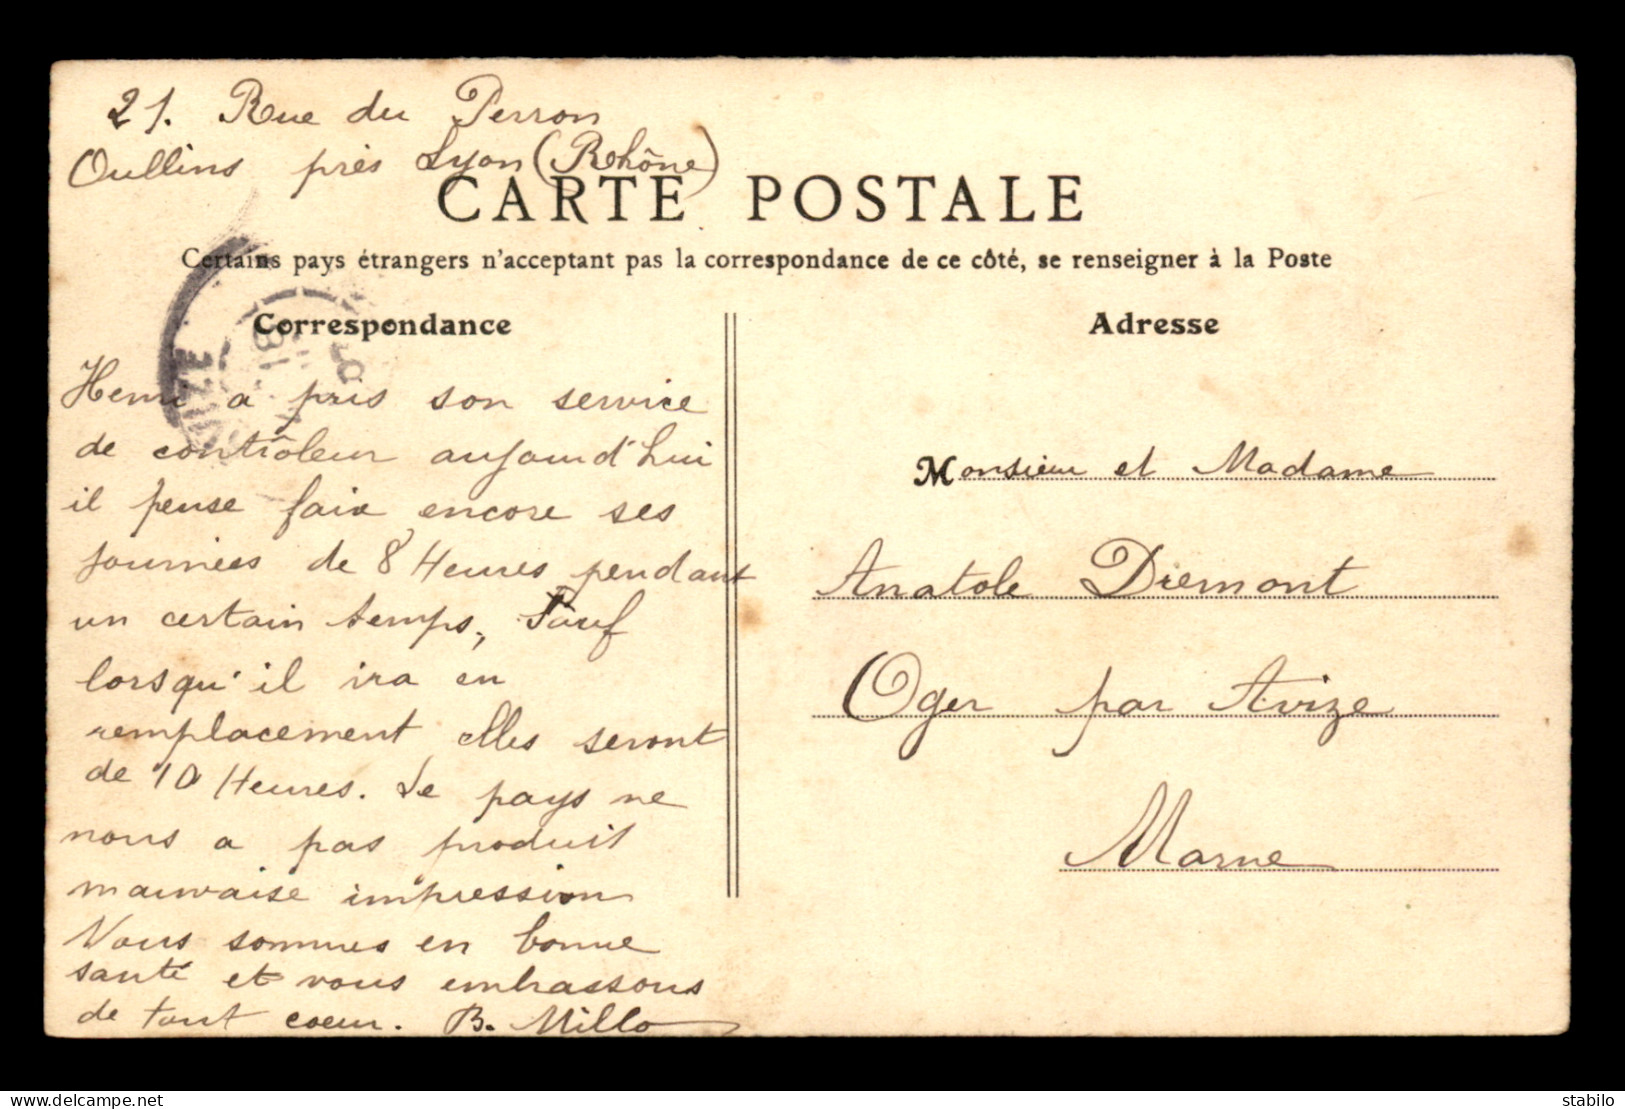 21. Rue du Perron
Oullins près Lyon (Rhône)
CARTE POSTALE
Certains pays étrangers n'acceptant pas la correspondance de ce côté, se renseigner à la Poste
Correspondance
Henri a pris son service
de contrôleur aujourd'hui
il pense faire encore ses
journées de 8 Heures pendant
un certain temps, Sauf
lorsqu'il ira en
remplacement elles seront
de 10 Heures. Le pays ne
nous a pas produit
mauvaise impression
Nous sommes en bonne
santé et vous embrassons
de tout coeur. B. Millo
Adresse
Monsieur et Madame
Anatole Dremont
Oger par Avize
Marne
delcampe.net
stabilo